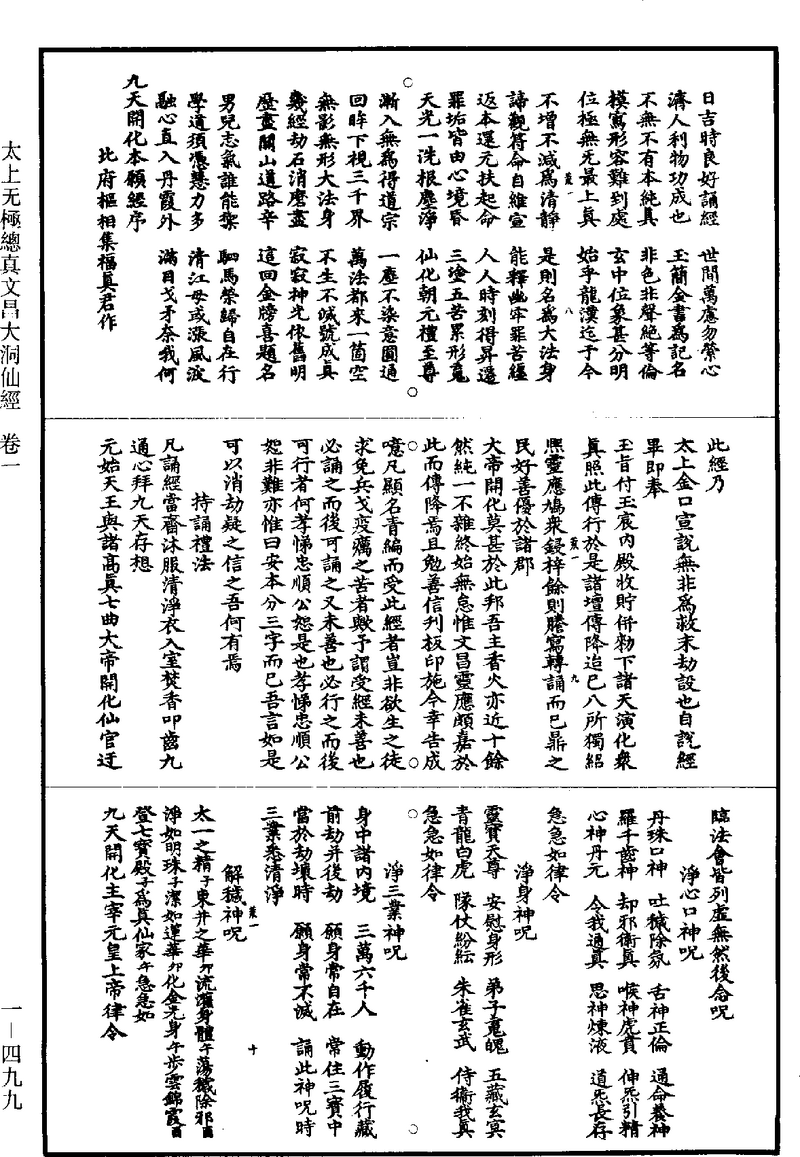 太上无極總真文昌大洞仙經　卷一
一—四九九
日吉時良好誦經　世間萬慮勿縈心
濟人利物功成也　玉簡金書爲記名
不無不有本純真　非色非聲絕等倫
模寫形容難到處　玄中位業甚分明
位極無元最上真　始乎龍漢迄于今
葉一　八
不增不減爲清靜　是則名爲大法身
諦觀符命自維宣　能釋幽牢罪苦纏
返本還元扶起命　人人時刻得昇遷
罪垢皆由心境昏　三塗五苦累形䰟
天光一洗根塵淨　仙化朝元禮至尊
漸入無爲得道宗　一塵不染意圓通
回眸下視三千界　萬法都來一箇空
無影無形大法身　不生不滅號成真
幾經劫石消磨盡　寂寂神光依舊明
歷盡關山道路辛　這回金牓喜題名
男兒志氣誰能槩　駟馬榮歸自在行
學道須憑慧力多　清江毋或漲風波
融心直入丹霞外　滿目戈矛奈我何
九天開化本願經序
北府樞相集福真君作
此經乃
太上金口宣說無非爲救末劫設也自說經
畢即奉
玉旨付玉宸內殿收貯併勑下諸天演化衆
真照此傳行於是諸壇傳降迨已八所獨紹
葉一　九
熈靈應鳩衆鋟梓餘則謄寫轉誦而已鼎之
民好善優於諸郡
大帝開化莫甚於此邦吾主香火亦近十餘
然純一不雜終始無怠惟文昌靈應頗嘉於
此而傳降焉且勉善信刋板印施今幸告成
噫凡顯名青編而受此經者豈非欲生之徒
求免兵戈疫癘之苦者歟予謂受經未善也
必誦之而後可誦之又未善也必行之而後
可行者何孝悌忠順公恕是也孝悌忠順公
恕非難亦惟曰安本分三字而已吾言如是
可以消劫疑之信之吾何有焉
持誦禮法
凡誦經當齋沐服清淨衣入室焚香叩齒九
通心拜九天存想
元始天王與諸高真七曲大帝開化仙官迂
臨法會皆列虛無然後念呪
淨心口神呪
丹珠口神　吐穢除氛　舌神正倫　通命養神
羅千齒神　却邪衛真　喉神虎賁　伸炁引精
心神丹元　令我通真　思神煉液　道炁長存
急急如律令
淨身神呪
靈寶天尊　安慰身形　弟子䰟魄　五藏玄冥
青龍白虎　隊仗紛紜　朱雀玄武　侍衛我真
急急如律令
淨三業神呪
身中諸内境　三萬六千人　動作履行藏
前劫并後劫　願身常自在　常住三寶中
當於劫壞時　願身常不滅　誦此神呪時
三業悉清淨
解穢神呪
葉一　十
太一之精子東井之華卯流灌身體午蕩穢除邪酉
淨如明珠子潔如蓮華卯化金光身午歩雲錦霞酉
登七寶殿子爲真仙家午急急如
九天開化主宰元皇上帝律令